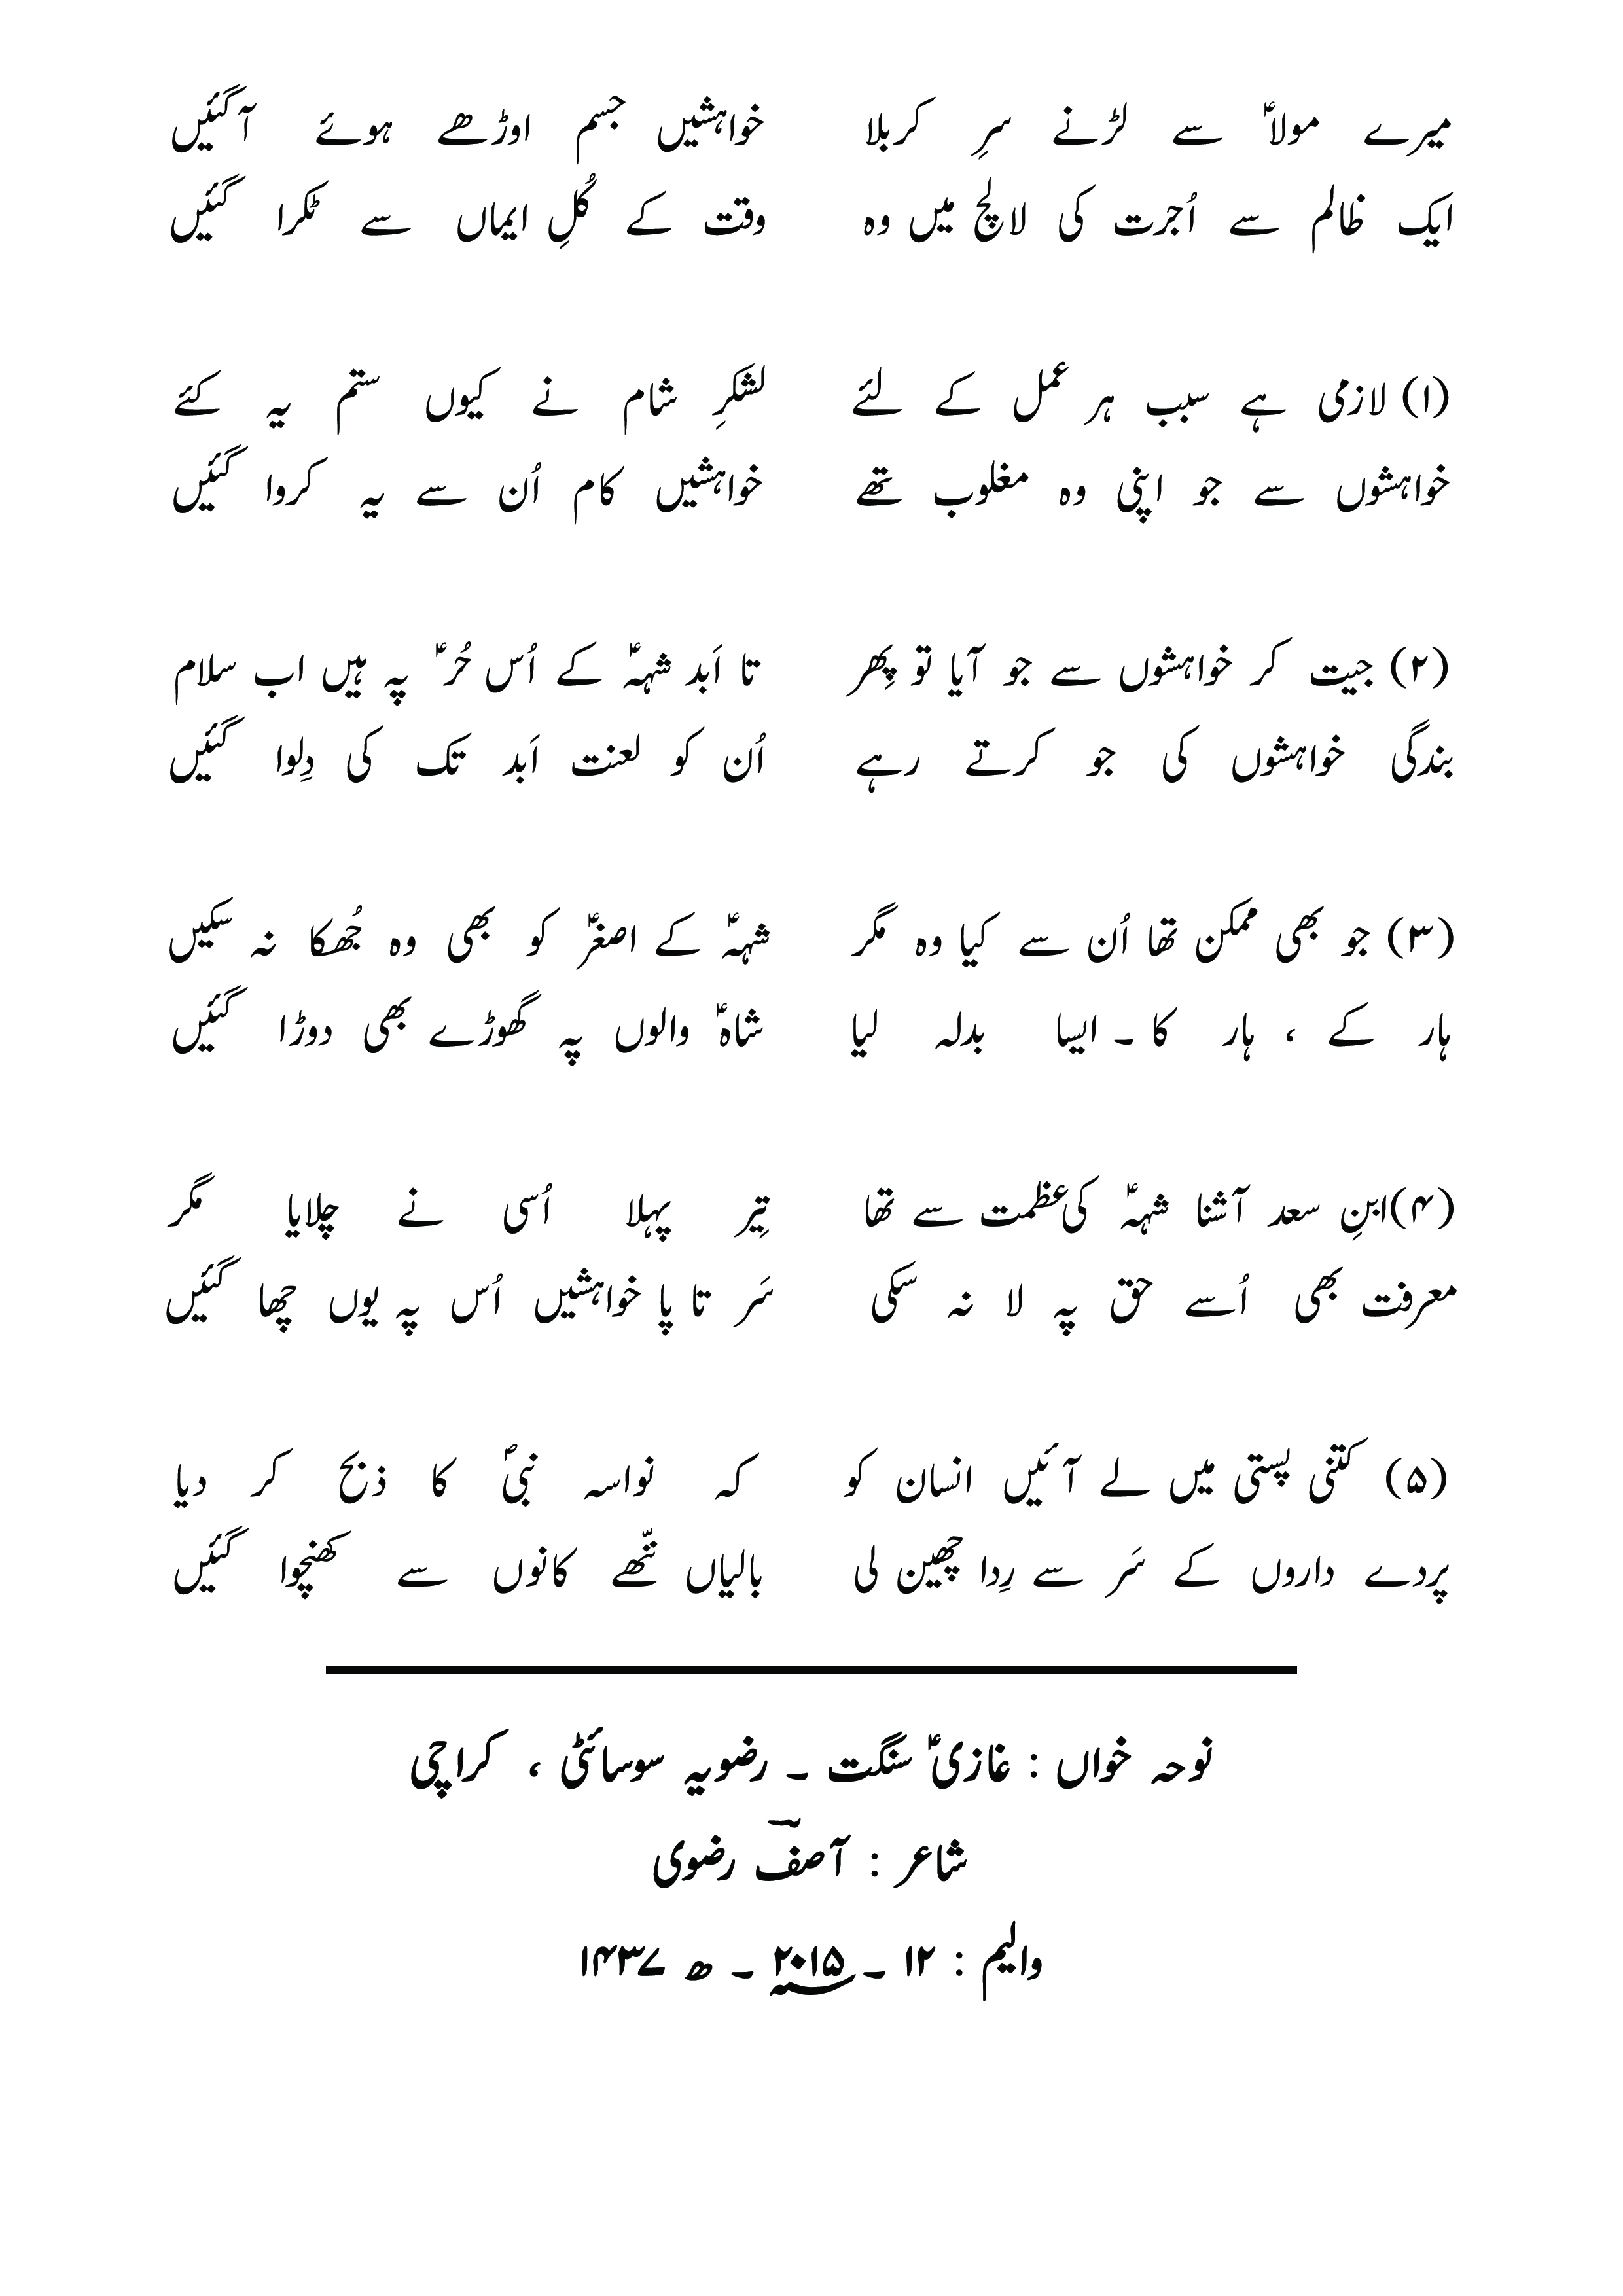 میرے مولاؑ سے لڑنے سرِ کربلا خواہشیں جسم اوڑھے ہوئے آ گئیں
ایک ظالم سے اُجرت کی لالچ میں وہ وقت کے کُلِ ایماں سے ٹکرا گئیں
(۱) لازمی ہے سبب ہر عمل کے لئے لشکرِ شام نے کیوں ستم یہ کئے
خواہشوں سے جو اپنی وہ مغلوب تھے خواہشیں کام اُن سے یہ کروا گئیں
(۲) جیت کر خواہشوں سے جو آیا تو پِھر تا اَبد شہہؑ کے اُس حُرؑ پہ ہیں اب سلام
بندگی خواہشوں کی جو کرتے رہے اُن کو لعنت اَبد تک کی دِلوا گئیں
(۳) جو بھی ممکن تھا اُن سے کیا وہ مگر شہہؑ کے اصغرؑ کو بھی وہ جُھکا نہ سکیں
ہار کے ، ہار کا ۔ ایسا بدلہ لیا شاہؑ والوں پہ گھوڑے بھی دوڑا گئیں
(۴) ابنِ سعد آشنا شہہؑ کی عظمت سے تھا تِیر پہلا اُسی نے چلایا مگر
معرفت بھی اُسے حق پہ لا نہ سکی سَر تا پا خواہشیں اُس پہ یوں چھا گئیں
(۵) کتنی پستی میں لے آئیں انسان کو کہ نواسہ نبیؐ کا ذبح کر دیا
پردے داروں کے سَر سے رِدا چھین لی بالیاں ننّھے کانوں سے کھنچوا گئیں
نوحہ خواں : غازیؑ سنگت ۔ رضویہ سوسائٹی ، کراچی
شاعر : آصفؔ رضوی
والیم : ۱۲ ۔ ۲۰۱۵؁ ۔ ھ ۱۴۳۷